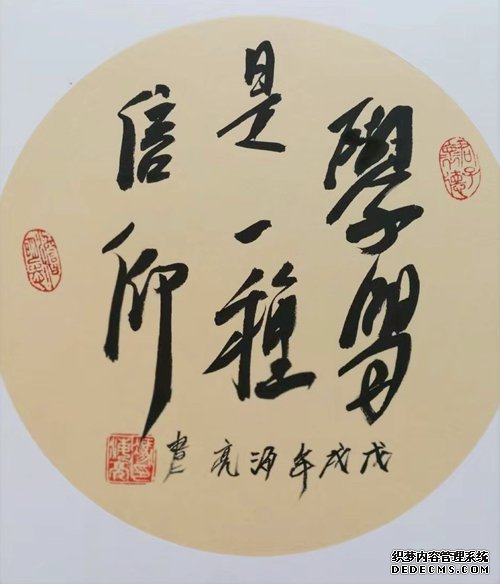 學習
是一種
信仰
戊戌年海亮書
君子厚德
织梦内容管理系统
DEDECMS.COM